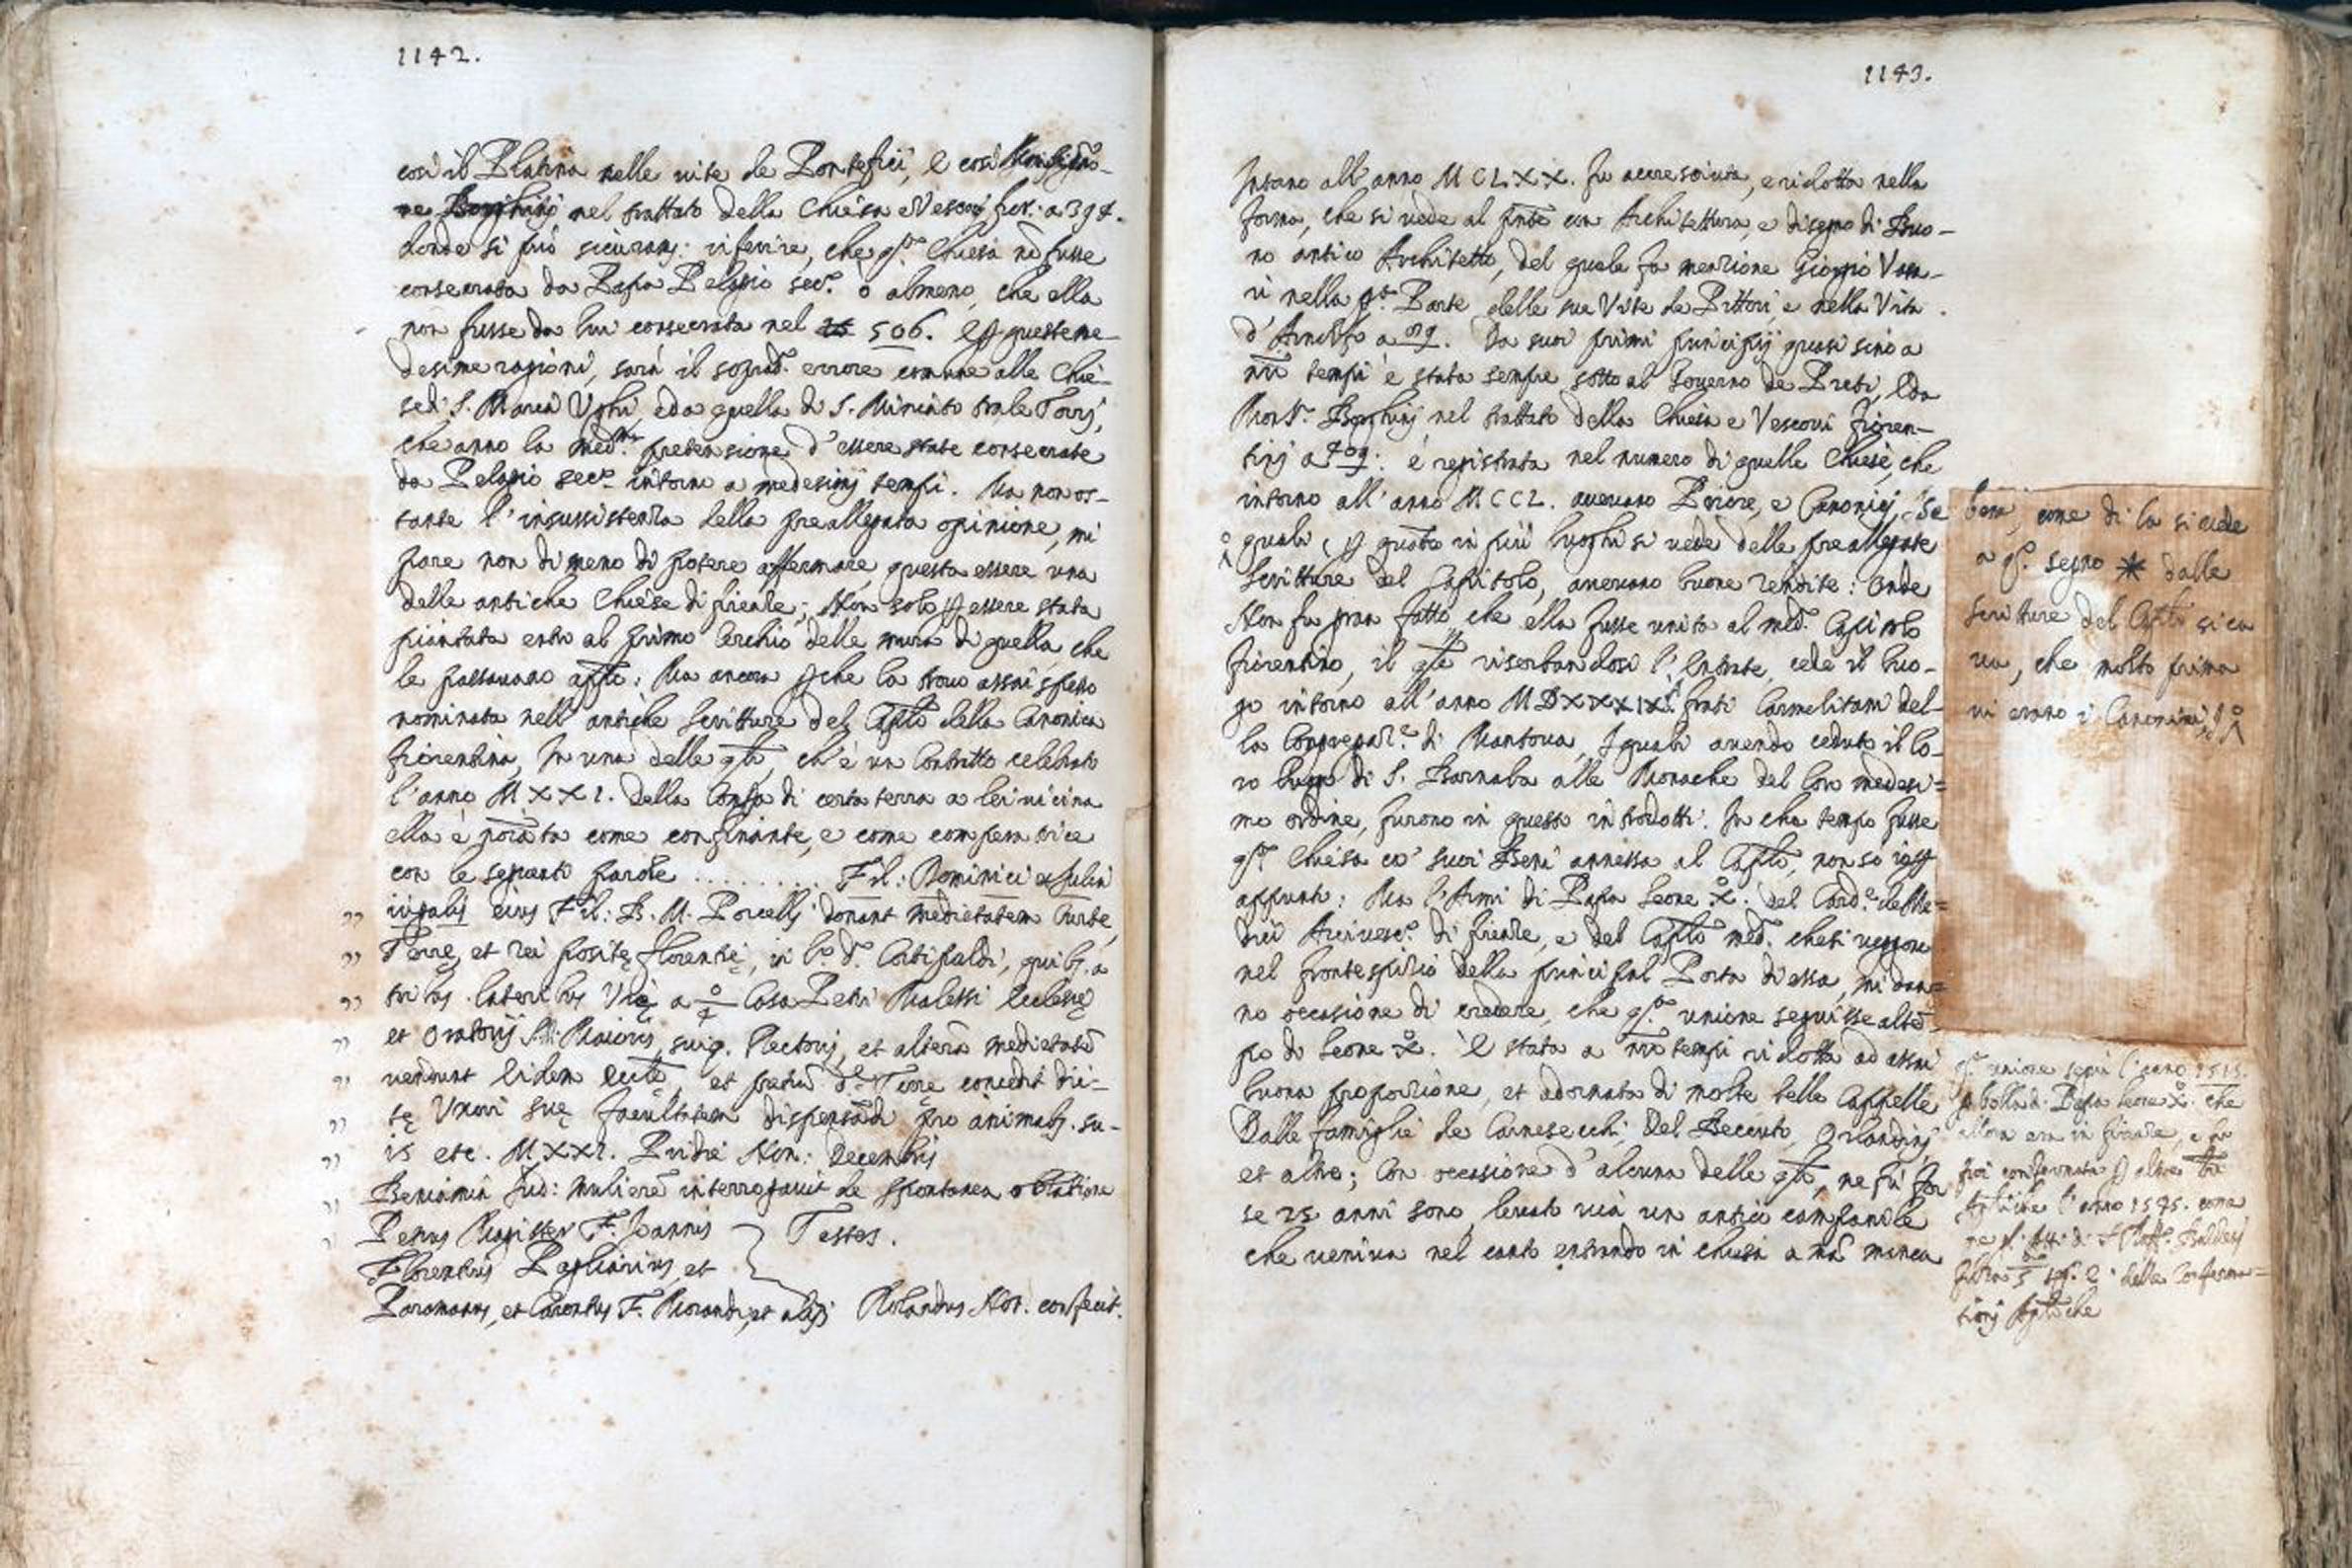 1142.
così il Platina nelle vite de Pontefici, e così Monsigno-
re Borghinj nel trattato della Chiesa e Vescovi fior: a 394.
donde si può sicuram: inferire, che qsta Chiesa nõ fusse
consecrata da Papa Pelagio sec.º ò almeno, che ella
non fusse da lui consecrata nel 506. E p queste me-
desime ragioni, sarà il soprad.º errore comune alle Chie-
se di S. Maria Ughi, e da quella di S. Miniato trale Torrj,
che anno la med.ma pretensione d'essere state consecrate
da Pelagio sec.º intorno a medesimj tempi. Ma non os-
tante l'insussistenza della preallegata opinione, mi
pare non di meno di potere affermare, questa essere una
delle antiche Chiese di firenze; Non solo p essere stata
piantata entro al primo Cerchio delle mura di quella, che
le passavano app.º: Ma ancora p che la trovo assai spesso
nominata nell' antiche Scritture del Caplo della Canonica
fiorentina, In una delle qli, ch'è un Contratto celebrato
l'anno MXXI. della Compa di certa terra a lei vicina
ella è noiata come confinante, e come comperatrice
con le seguenti parole ......... Fil: Dominici et Julia
iugalis eius Fil: B. M. Porcellj donant medietatem Curte,
Terrę, et rei positę florentię, in l.º d.º Cortifaldi, quibs. a
tribs. lateribs Vię a 4º Casa Petri Malessi Eclesię
et Oratorij S. M. Maioris, suiq. Rectoris, et alterã medietatẽ
vendunt eidem Ecclẽ, et pretiũ d.ę Terrę concedit dic-
tę Uxori suę facultatem dispensãdi pro animabs. su-
is etc. MXXI. Pridie Non: Decembris
Beniamin Jud: mulierẽ interrogavit de spontanea oblatione
Petrus Magister F. Joannis } Testes.
Florentius Pagliarius, et
Paromatus, et Carentus F. Morandi, et alijs Rolandus Not. confecit.
1143.
Intorno all'anno MCLXX. fu accresciuta, e ridotta nella
forma, che si vede al pñte con Architettura, e disegno di Buo-
no antico Architetto, del quale fa menzione Giorgio Vasa-
ri nella p.ª Parte delle sue Vite de Pittori, e nella Vita
d'Arnolfo a 29. Da suoi primi principij quasi sino a
nri tempi è stata sempre sotto al Governo de Preti, e da
Mons.r Borghinj nel trattato della Chiesa e Vescovi fioren-
tinj a 409: è registrata nel numero di quelle Chiese, che
intorno all'anno MCCL. avevano Priore, e Canonicj, Se
quali, p quãto in più luoghi si vede delle preallegate
Scritture del Capitolo, avevano buone rendite: Onde
Non fu gran fatto che ella fusse unita al med.º Capitolo
fiorentino, il qle riserbandosi l'Entrate, cedè il luo-
go intorno all'anno MDXXXIX. frati Carmelitani del-
la Congregaz.e di Mantova, I quali avendo ceduto il lo-
ro luogo di S. Barnaba alle Monache del loro medesi=
mo ordine, furono in questo introdotti. In che tempo fusse
qsta Chiesa co' suoi Beni annessa al Caplo, non so io p
appunto: Ma l'Armi di Papa Leone Xº. del Card.e de Me=
dici Arcivesc.º di firenze, e del Caplo med.º che si veggono
nel frontespizio della principal Porta di essa, mi dan=
no occasione di credere, che qsta unione seguisse al tẽ-
po di Leone Xº. È stata a nri tempi ridotta ad assai
buona proporzione, et adornata di molte belle Cappelle
Dalle famiglie de Carnesecchi, Del Beccuto, Orlandinj
et altre; Con occasione d'alcuna delle qli, ne fù for
se 25 anni sono, levato via un antico campanile
che veniva nel canto entrando in chiesa a mã manca
bene, come di la si vede
a q.º segno * dalle
Scritture del Caplo si ca
va, che molto prima
vi erano i Canonici
qsta unione seguì l'anno 1515.
p bolla di Papa Leone Xº. che
allora era in firenze, e fu
poi confermata p altre Lře
Aplĩche l'anno 1575. come